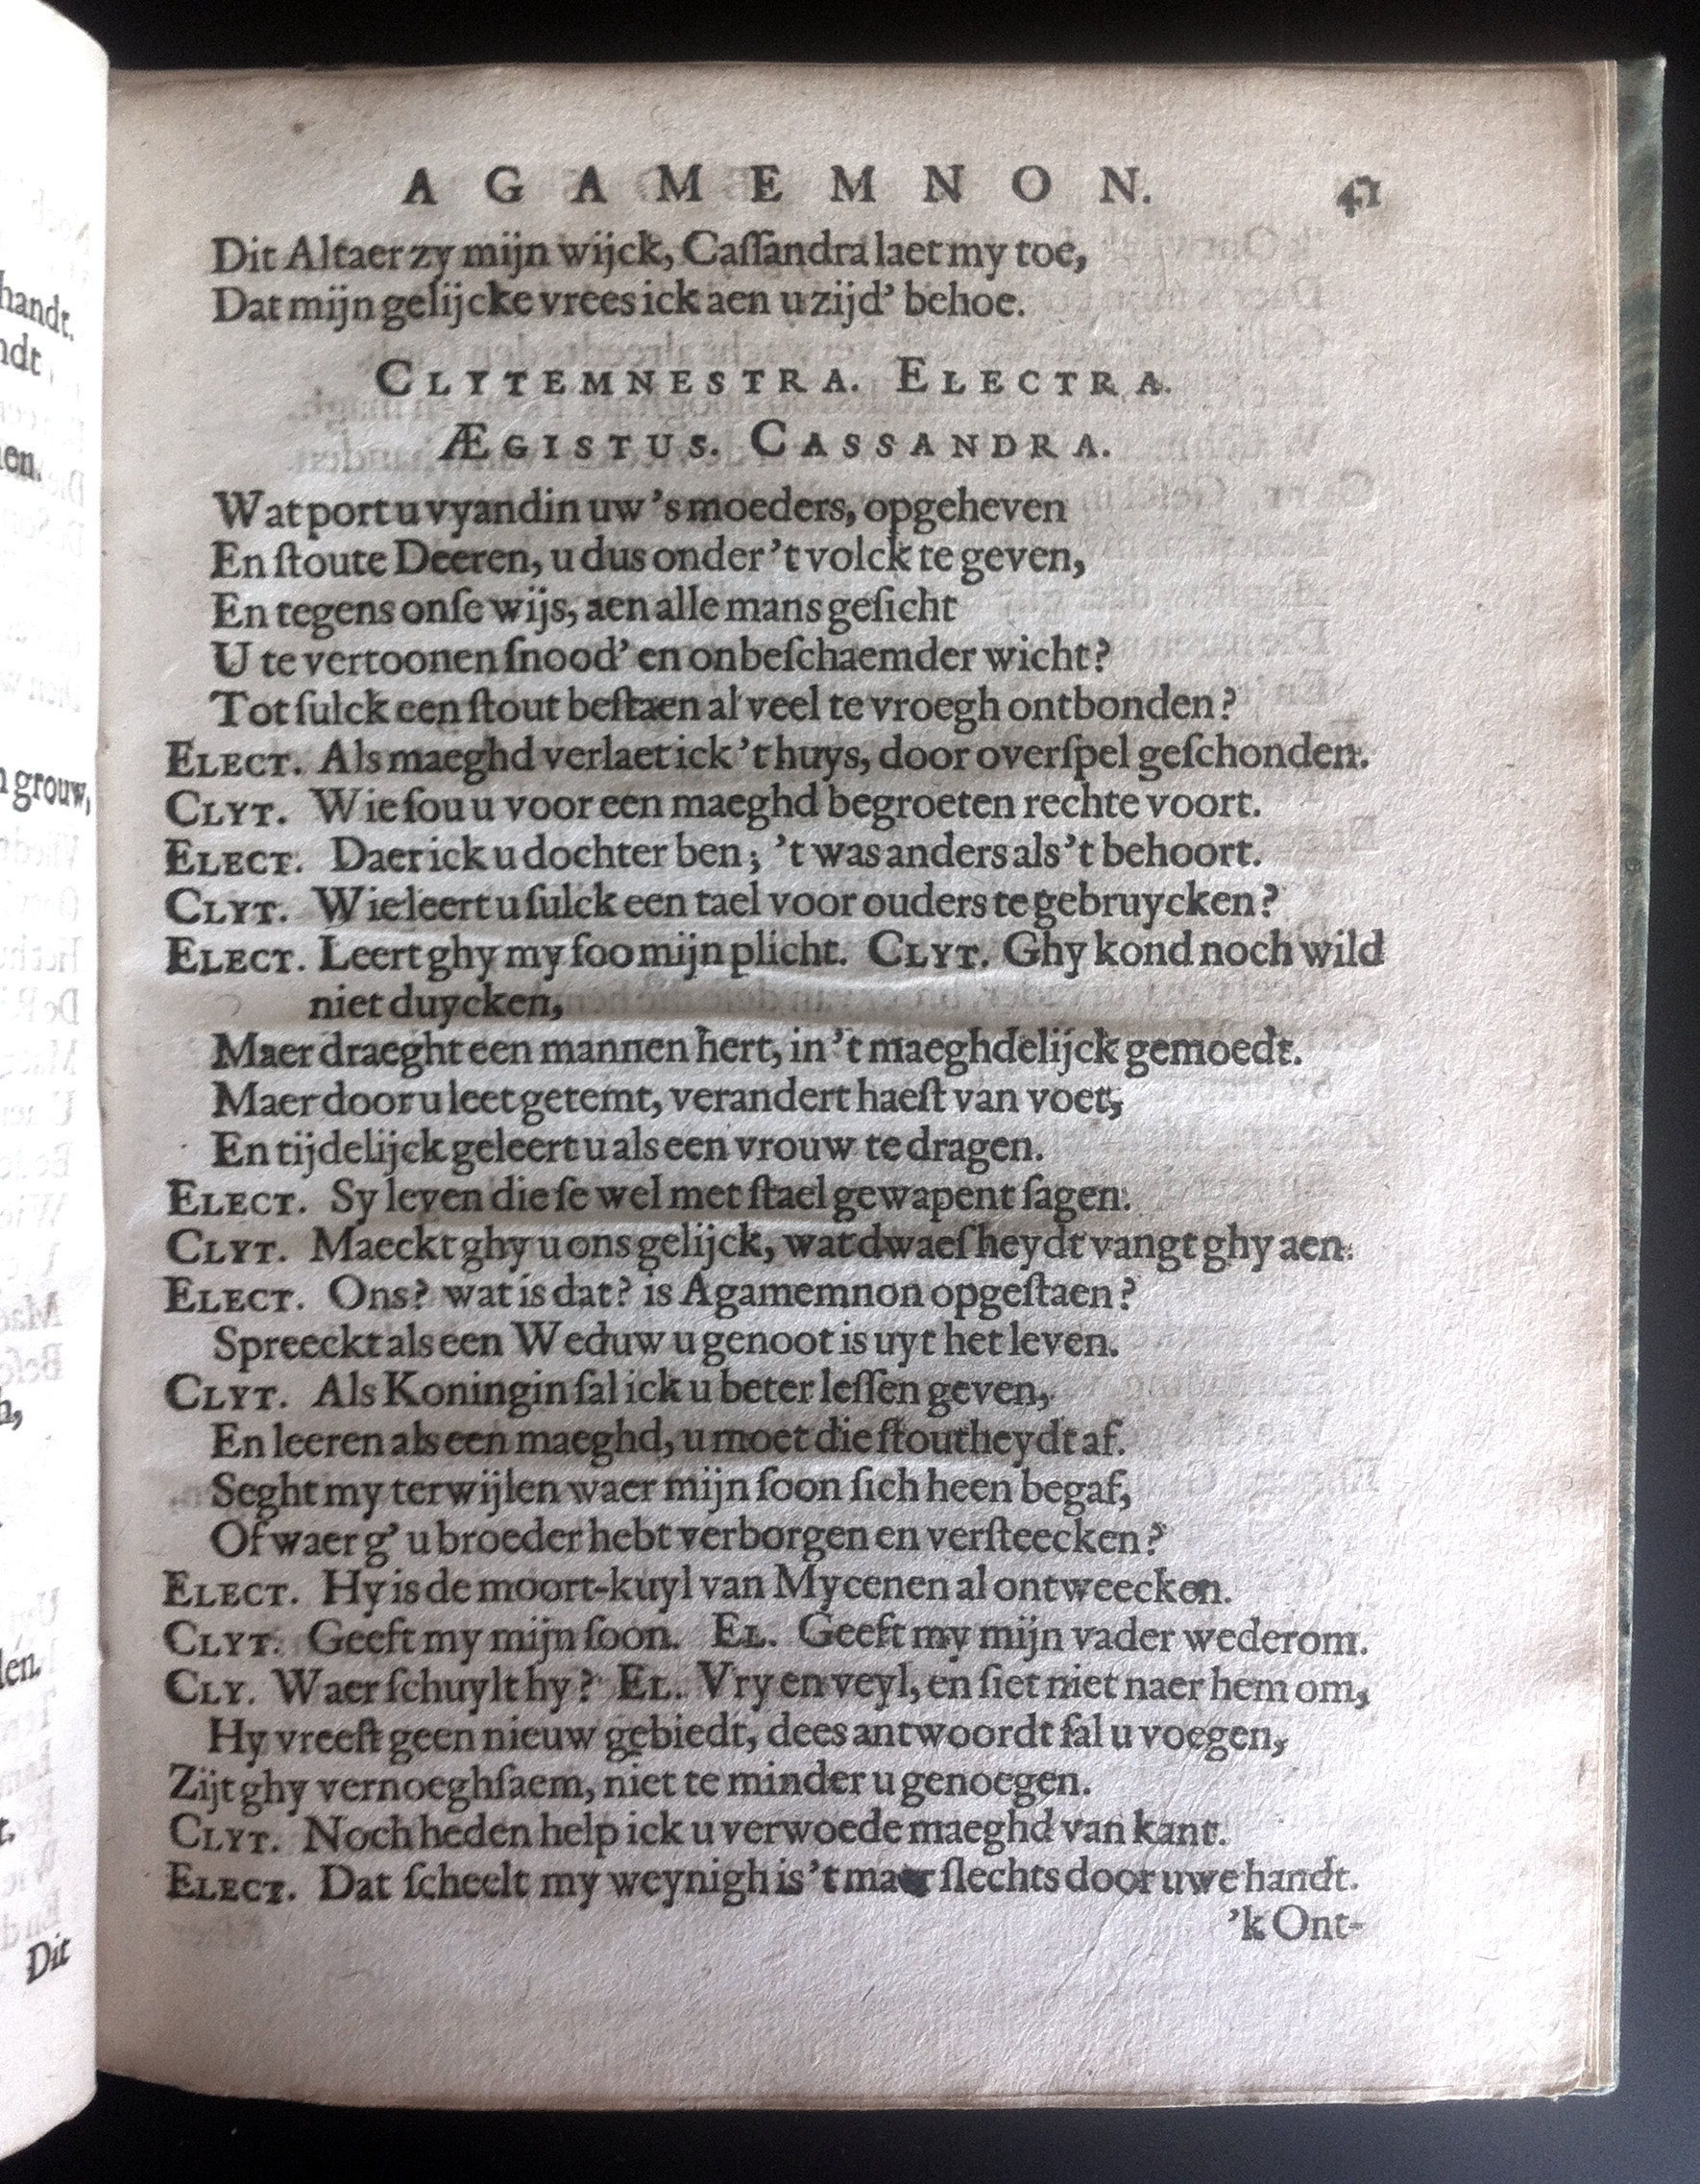 AGAMEMNON. 41
Dit Altaer zy mijn wijck, Caſſandra laet my toe,
Dat mijn gelijcke vrees ick aen u zijd' behoe.
CLYTEMNESTRA. ELECTRA.
ÆGISTUS. CASSANDRA.
Wat port u vyandin uw 's moeders, opgeheven
En ſtoute Deeren, u dus onder 't volck te geven,
En tegens onſe wijs, aen alle mans geſicht
U te vertoonen ſnood' en onbeſchaemder wicht?
Tot ſulck een ſtout beſtaen al veel te vroegh ontbonden?
ELECT. Als maeghd verlaet ick 't huys, door overſpel geſchonden.
CLYT. Wie ſou u voor een maeghd begroeten rechte voort.
ELECT. Daer ick u dochter ben; 't was anders als 't behoort.
CLYT. Wie leert u ſulck een tael voor ouders te gebruycken?
ELECT. Leert ghy my ſoo mijn plicht. CLYT. Ghy kond noch wild
niet duycken,
Maer draeght een mannen hert, in 't maeghdelijck gemoedt.
Maer door u leet getemt, verandert haeſt van voet,
En tijdelijck geleert u als een vrouw te dragen.
ELECT. Sy leven die ſe wel met ſtael gewapent ſagen.
CLYT. Maeckt ghy u ons gelijck, wat dwaeſheydt vangt ghy aen.
ELECT. Ons? wat is dat? is Agamemnon opgeſtaen?
Spreeckt als een Weduw u genoot is uyt het leven.
CLYT. Als Koningin ſal ick u beter leſſen geven,
En leeren als een maeghd, u moet die ſtoutheydt af.
Seght my terwijlen waer mijn ſoon ſich heen begaf,
Of waer g' u broeder hebt verborgen en verſteecken?
ELECT. Hy is de moort-kuyl van Mycenen al ontweecken.
CLYT. Geeft my mijn ſoon. EL. Geeft my mijn vader wederom.
CLY. Waer ſchuylt hy? EL. Vry en veyl, en ſiet niet naer hem om,
Hy vreeſt geen nieuw gebiedt, dees antwoordt ſal u voegen,
Zijt ghy vernoeghſaem, niet te minder u genoegen.
CLYT. Noch heden help ick u verwoede maeghd van kant.
ELECT. Dat ſcheelt my weynigh is 't maer ſlechts door uwe handt.
'k Ont-
handt.
ndt
en.
grouw,
len.
Dit